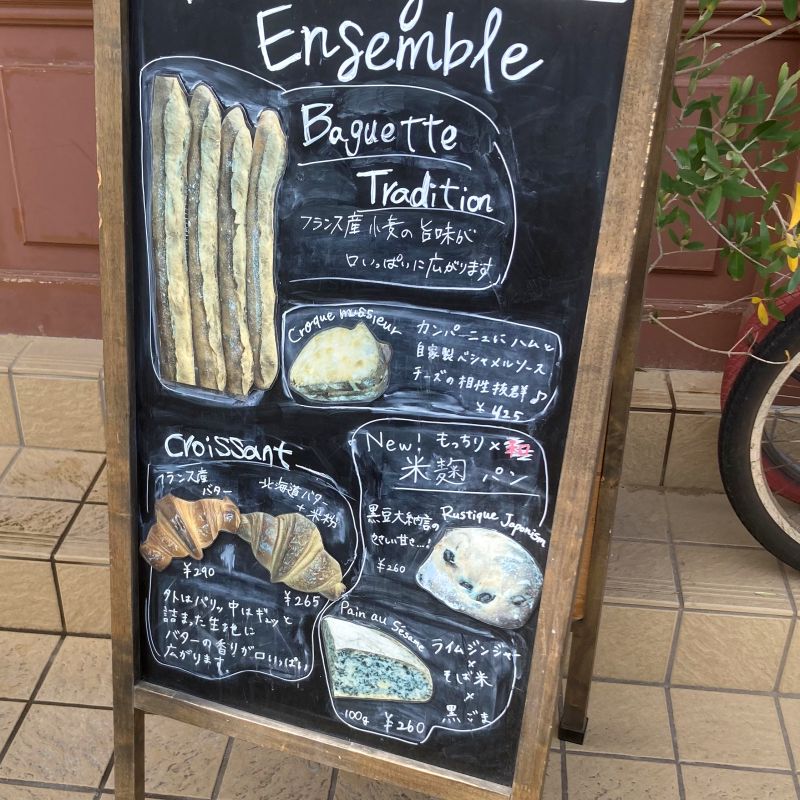 Ensemble
Baguette
Tradition
フランス産 小麦の旨味が
口いっぱいに広がります
Croque mussieur
カンパーニュにハムと
自家製ベシャメルソース
チーズの相性抜群♪
¥425
Croissant
フランス産
バター
北海道バター
+米粉
¥290
¥265
外はパリッ中はギュッと
詰まった生地に
バターの香りが口いっぱい
広がります。
New! もっちり×和
米麹 パン
黒豆大納言の
やさしい甘さ...!
¥260
Rustique Japonism
Pain au Sésame
100g ¥260
ライムジンジャー
×
そば米
×
黒ごま